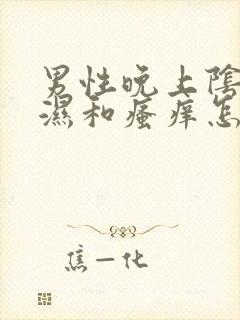 男性晚上陰
濕和瘙痒怎
焦一化